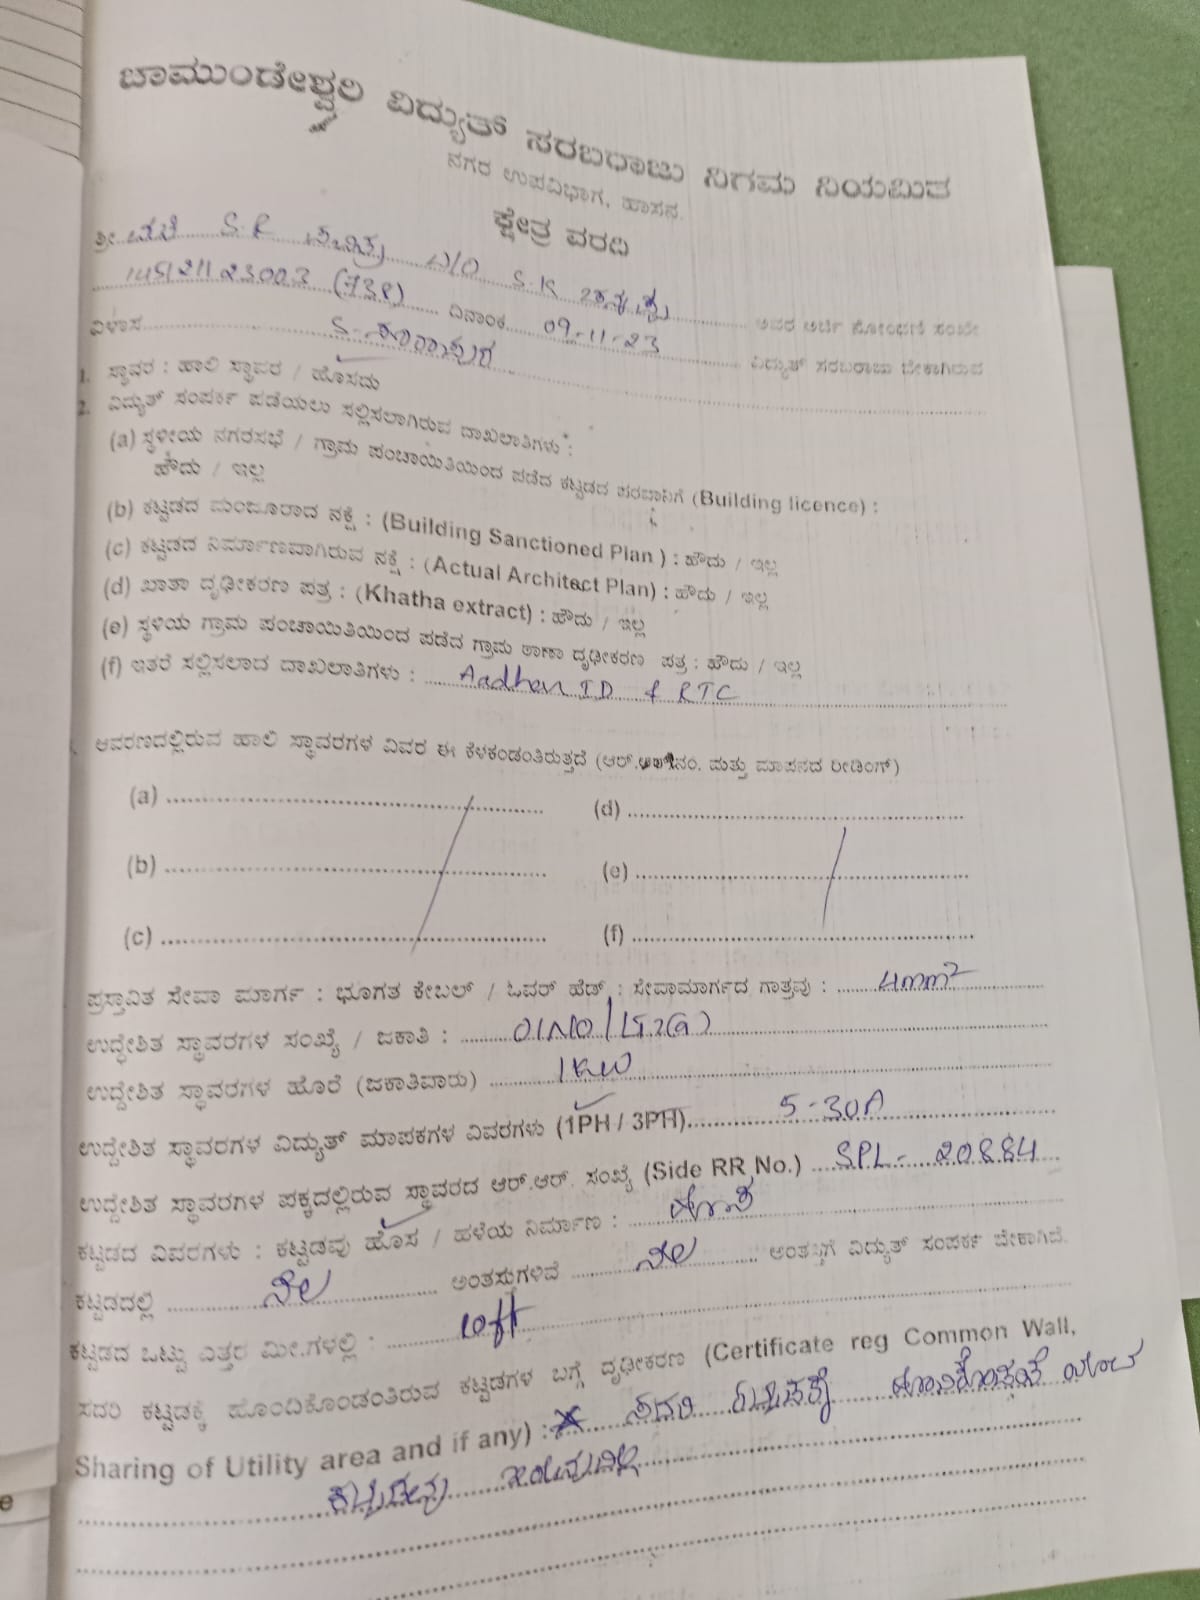 ಚಾಮುಂಡೇಶ್ವರಿ ವಿದ್ಯುತ್ ಸರಬರಾಜು ನಿಗಮ ನಿಯಮಿತ
ನಗರ ಉಪವಿಭಾಗ, ಹಾಸನ.
ಕ್ಷೇತ್ರ ವರದಿ
ಶ್ರೀ S.R D/O S.K ಅವರ ಅರ್ಜಿ ನೋಂದಣಿ ಸಂಖ್ಯೆ
ದಿನಾಂಕ 09-11-23 ವಿದ್ಯುತ್ ಸರಬರಾಜು ಬೇಕಾಗಿರುವ
ವಿಳಾಸ
1. ಸ್ಥಾವರ : ಹಾಲಿ ಸ್ಥಾವರ / ಹೊಸದು
2. ವಿದ್ಯುತ್ ಸಂಪರ್ಕ ಪಡೆಯಲು ಸಲ್ಲಿಸಲಾಗಿರುವ ದಾಖಲಾತಿಗಳು :
(a) ಸ್ಥಳೀಯ ನಗರಸಭೆ / ಗ್ರಾಮ ಪಂಚಾಯಿತಿಯಿಂದ ಪಡೆದ ಕಟ್ಟಡದ ಪರವಾನಿಗೆ (Building licence) :
ಹೌದು / ಇಲ್ಲ
(b) ಕಟ್ಟಡದ ಮಂಜೂರಾದ ನಕ್ಷೆ : (Building Sanctioned Plan ) : ಹೌದು / ಇಲ್ಲ
(c) ಕಟ್ಟಡದ ನಿರ್ಮಾಣವಾಗಿರುವ ನಕ್ಷೆ : (Actual Architect Plan) : ಹೌದು / ಇಲ್ಲ
(d) ಖಾತಾ ದೃಢೀಕರಣ ಪತ್ರ : (Khatha extract) : ಹೌದು / ಇಲ್ಲ
(e) ಸ್ಥಳಿಯ ಗ್ರಾಮ ಪಂಚಾಯಿತಿಯಿಂದ ಪಡೆದ ಗ್ರಾಮ ಠಾಣಾ ದೃಢೀಕರಣ ಪತ್ರ : ಹೌದು / ಇಲ್ಲ
(f) ಇತರೆ ಸಲ್ಲಿಸಲಾದ ದಾಖಲಾತಿಗಳು : Aadhar ID & RTC
ಆವರಣದಲ್ಲಿರುವ ಹಾಲಿ ಸ್ಥಾವರಗಳ ವಿವರ ಈ ಕೆಳಕಂಡಂತಿರುತ್ತದೆ (ಆರ್.ಆರ್.ನಂ. ಮತ್ತು ಮಾಪನದ ರೀಡಿಂಗ್)
(a) (d)
(b) (e)
(c) (f)
ಪ್ರಸ್ತಾವಿತ ಸೇವಾ ಮಾರ್ಗ : ಭೂಗತ ಕೇಬಲ್ / ಓವರ್ ಹೆಡ್ : ಸೇವಾಮಾರ್ಗದ ಗಾತ್ರವು : 4mm²
ಉದ್ದೇಶಿತ ಸ್ಥಾವರಗಳ ಸಂಖ್ಯೆ / ಜಕಾತಿ : 01NO/LT2(a)
ಉದ್ದೇಶಿತ ಸ್ಥಾವರಗಳ ಹೊರೆ (ಜಕಾತಿವಾರು) 1KW
ಉದ್ದೇಶಿತ ಸ್ಥಾವರಗಳ ವಿದ್ಯುತ್ ಮಾಪಕಗಳ ವಿವರಗಳು (1PH / 3PH) 5-30A
ಉದ್ದೇಶಿತ ಸ್ಥಾವರಗಳ ಪಕ್ಕದಲ್ಲಿರುವ ಸ್ಥಾವರದ ಆರ್.ಆರ್. ಸಂಖ್ಯೆ (Side RR No.) SPL-20884
ಕಟ್ಟಡದ ವಿವರಗಳು : ಕಟ್ಟಡವು ಹೊಸ / ಹಳೆಯ ನಿರ್ಮಾಣ : ಹೊಸ
ಕಟ್ಟಡದಲ್ಲಿ ನೆಲ ಅಂತಸ್ತುಗಳಿವೆ ನೆಲ ಅಂತಸ್ತಿಗೆ ವಿದ್ಯುತ್ ಸಂಪರ್ಕ ಬೇಕಾಗಿದೆ.
ಕಟ್ಟಡದ ಒಟ್ಟು ಎತ್ತರ ಮೀ.ಗಳಲ್ಲಿ : 10ft
ಸದರಿ ಕಟ್ಟಡಕ್ಕೆ ಹೊಂದಿಕೊಂಡಂತಿರುವ ಕಟ್ಟಡಗಳ ಬಗ್ಗೆ ದೃಢೀಕರಣ (Certificate reg Common Wall,
Sharing of Utility area and if any) : ಸದರಿ ಕಟ್ಟಡಕ್ಕೆ ಹೊಂದಿಕೊಂಡಂತೆ ಯಾವ
ಕಟ್ಟಡವು ಇರುವುದಿಲ್ಲ